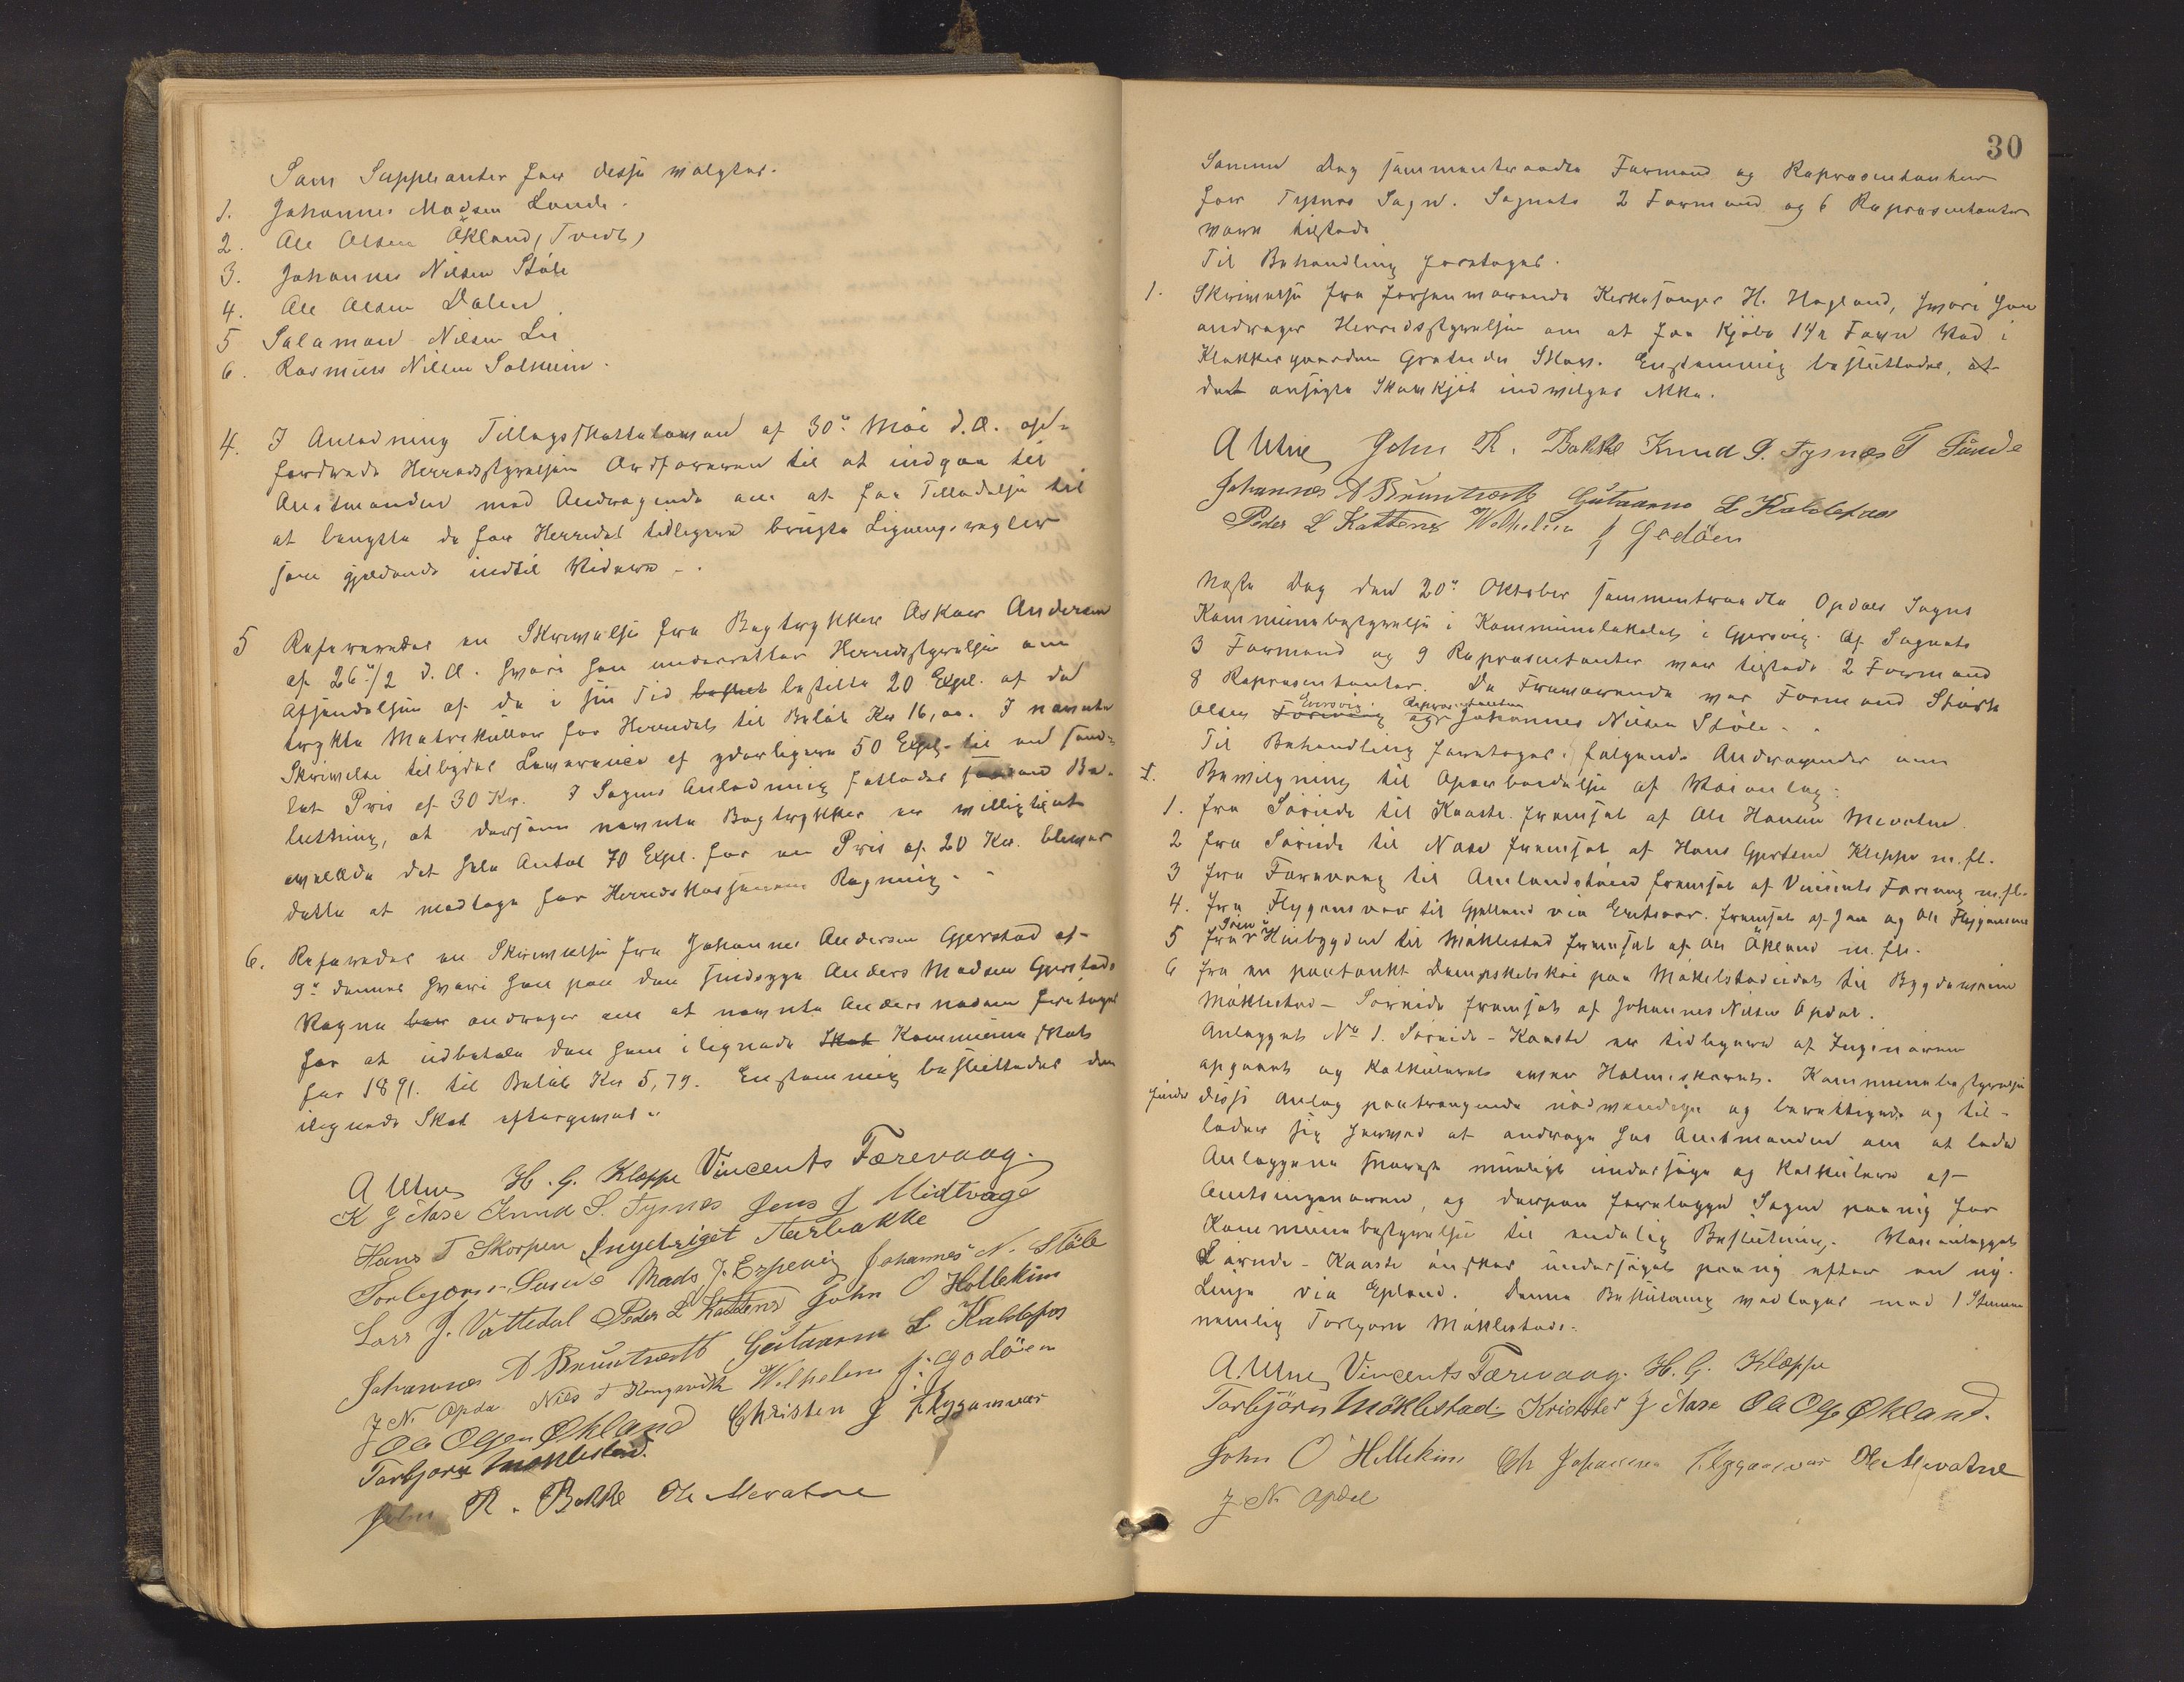 Som Suppleanter for disse valgtes.
1. Johannes Madsen Lande.
2. Ole Olsen Økland (Tvedt)
3. Johannes Nilsen Støle
4. Ole Olsen Dalen
5 Salamon Nilsen Lie
6. Rasmus Nilsen Solheim.
4. I Anledning Tillægsskatteloven af 30te Mai d.A. op-
fordrede Herredsstyrelsen Ordføreren til at indgaa til
Amtmanden med Andragende om at faa Tilladelse til
at benytte de for Herredet tidligere brugte Ligningsregler
som gjældende indtil Videre.
5 Refereredes en Skrivelse fra Bogtrykker Oskar Andersen
af 26/2 d.A. hvori han underretter Herredsstyrelsen om
Afsendelsen af de i sin Tid bestilte 20 Expl. af de
trykte Matrikuller for Herredet til Beløb Kr 16,00. I nævnte
Skrivelse tilbydes Leverance af yderligere 50 Expl. til ned sand-
lat Pris af 30 Kr. I Sagens Anledning fattedes saadan Be-
slutning, at dersom nævnte Bogtrykker er villig til at
overlade det hele Antal 70 Expl. for en Pris af 20 Kr. bliver
dette at modtage for Herredskassens Regning.
6. Refereredes en Skrivelse fra Johannes Andersen Gjerstad af
9de dennes hvori han paa den sindssyge Anders Madsen Gjerstads
Vegne andrager om at nævnte Anders Madsen fritages
for at udbetale den ham ilignede Skat Kommuneskat
for 1891. til Beløb Kr 5,79. Enstemmig besluttedes den
ilignede Skat eftergivet.
A Utne H. G. Kleppe Vincents Færevaag.
K J Aase Knud S. Tysnes Jens J Midtvage
Hans T Skorpen Ingebrigt Aarbakke
Torbjørn Mads J. Espevig Johannes N. Støle
Lars J. Vattedal Peder L Kattenes John O Hollekim
Johannes A Bruntveit Guttorm L Kaldefos
J N. Opdal Nils T Kongsvik Wilhelm J. Godøen
Ole Olsen Økland Christen J Flygansvær
Torbjørn Møklestad.
John R. Bakke Ole Mevatne
30
Samme Dag sammentraadte Formænd og Repræsentanter
for Tysnes Sogn. Sognets 2 Formænd og 6 Repræsentanter
vare tilstede
Til Behandling foretoges.
1. Skrivelse fra forhenværende Kirkesanger H. Hagland, hvori han
andrager Herredsstyrelsen om at faa Kjøbe 1½ Favn Ved i
Klokkergaarden Skov. Enstemmig besluttedes, at
det ansøgte Skovkjøb indvilges ikke.
A Utne John R. Bakke Knud S. Tysnes T Sunde
Johannes A Bruntveit Guttorm L Kaldefos
Peder L Kattenes Wilhelm J Godøen
Næste Dag den 20de Oktober sammentraadte Opdals Sogns
Kommunebestyrelse i Kommunelokalet i Gjersvig. Af Sognets
3 Formænd og 9 Repræsentanter var tilstede 2 Formænd
8 Repræsentanter. De Fraværende var Formand
Olsen Færevaag og Repræsentanten Johannes Nilsen Støle.
Til Behandling foretoges: følgende Andragender om
I. Bevilgning til Oparbeidelse af Veianlæg:
1. fra Søreide til Kaaste fremsat af Ole Hansen Mevatne
2 fra Søreide til Nase fremsat af Hans Gjertsen Kleppe m.fl.
3 fra Færevaag til Amlandstøen fremsat af Vincents Færevaag m.fl.
4. fra Flygansvær til Gjelland via fremsat af Jan og Ole Flygansvær
5 fra Hinbygden til Møklestad fremsat af Ole Økland m.fl.
6 fra en paatænkt Dampskibskai paa Møklestadeidet til Bygdeveien
Møklestad - Søreide fremsat af Johannes Nilsen Opdal.
Anlægget No 1. Søreide - Kaaste er tidligere af Ingeniøren
opgaaet og kalkuleret over Holmeskaret. Kommunebestyrelsen
finder disse Anlæg paatrængende nødvendige og berettigede og til-
lader sig herved at andrage hos Amtmanden om at lade
Anlæggene snarest muligt undersøge og kalkulere af
Amtsingeniøren, og derpaa forelægge Sagen paany for
Kommunebestyrelsen til endelig Beslutning. Veianlægget
Søreide - Kaaste ønskes undersøgt paany efter en ny
Linje via Epland. Denne Beslutning vedtoges mod 1 Stemme
nemlig Torbjørn Møklestads.
A. Utne Vincents Færevaag. H. G. Kleppe
Torbjørn Møklestad Kristofer J Aase Ole Ols Økland.
John O Hollekim Ch Johannesen Flygansvær Ole Mevatne
J. N. Opdal